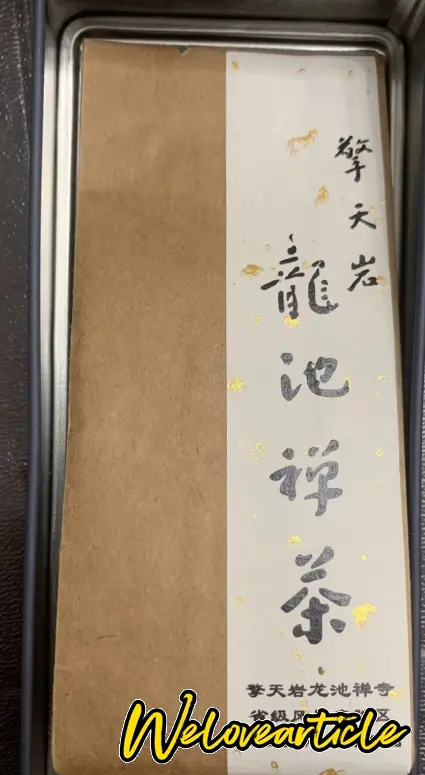 擎天岩
龍池禅茶
擎天岩龙池禅寺
省级风区
Welovearticle